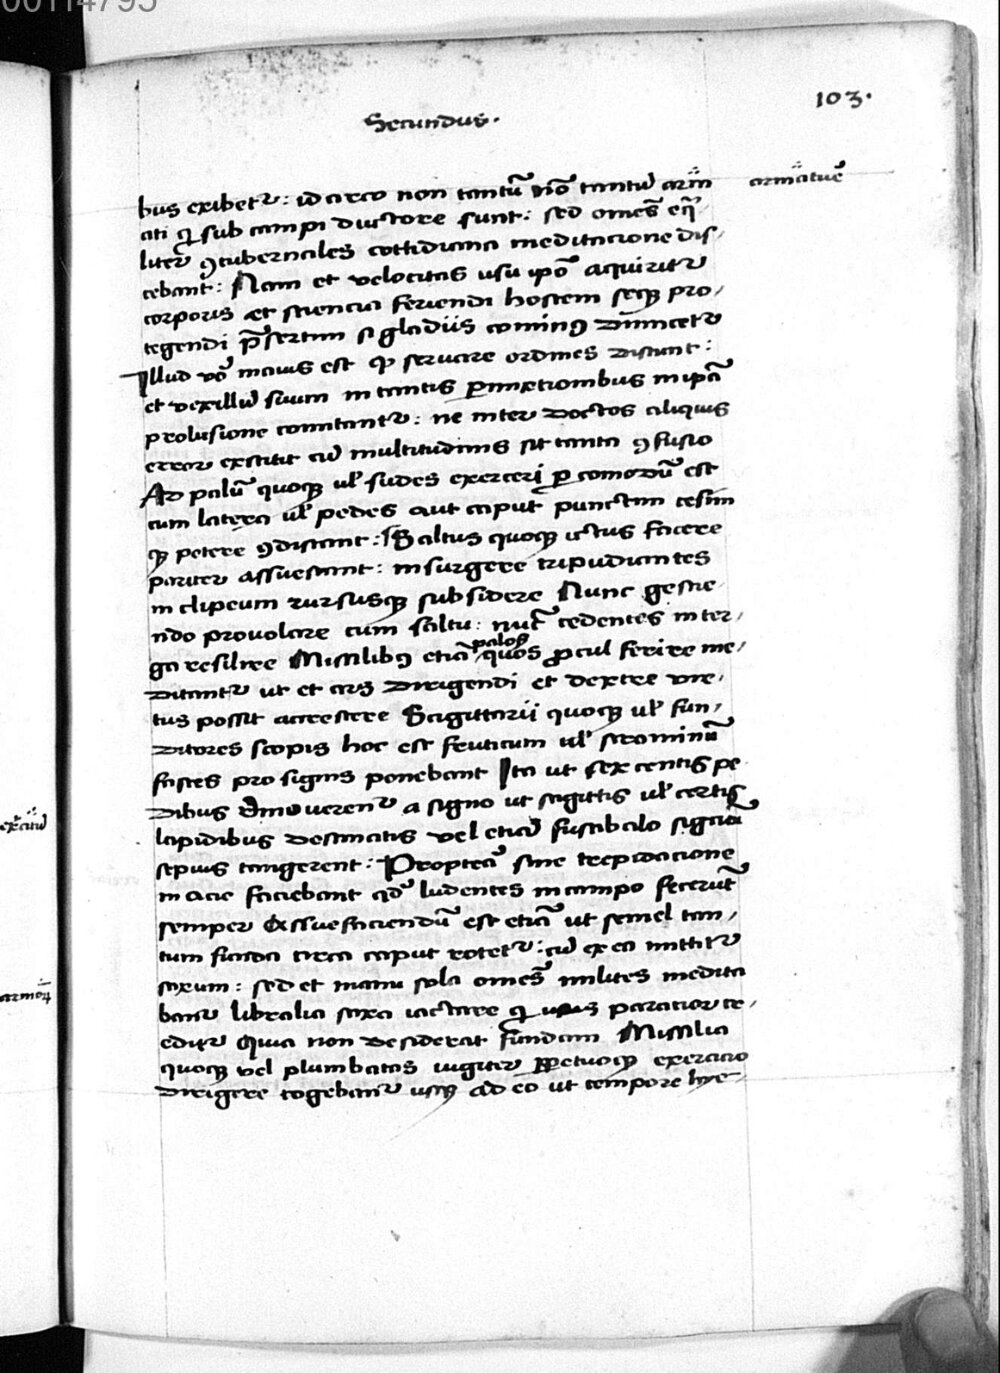 00114795
103.
Secundus.
bus exibetr̃: idcirco non tantũ nõ tantũ arm̃
armãtur̃
ati q̃ sub campi ductore sunt: sed omẽs eq̃
liter ꝯtubernales cottidiana meditacione dis-
cebant: Nam et velocitas usu ip̃o aquiritr̃
corporis et sciencia feriendi hostem seq̃ꝫ pro-
tegendi p̃sertim si gladiis cominꝰ dimicetr̃
Illud vo᷑ maius est qd̃ servare ordines discunt:
et vexillũ suum in tantis ꝑmixtionibus in ip̃a
prolusione comitantr̃: ne inter doctos aliquis
error existit cũ multitudinis sit tanta ꝯfusio
Ad palũ quoqꝫ ul̃ sudes exerceri ꝑcomodũ est
cum latera ul̃ pedes aut caput punctim cesim
qꝫ petere ꝯdiscant: Saltus quoqꝫ ictus facere
pariter assuescant: insurgere tripudiantes
in clipeum rursusqꝫ subsidere Nunc gestie-
ndo provolare cum saltu: nũc cedentes in ter-
ga resilire Missilibꝰ etiã palos quos ꝓcul ferire me-
ditantr̃ ut et ars dirigendi et dextre vir-
tus possit accrescere Sagittarii quoqꝫ ul̃ fun-
ditores scopis hoc est fruticum ul̃ straminũ
fastes pro signis ponebant Ita ut sex centis pe
dibus dimoverentr̃ a signo ut sagittis ul̃ certis
exercitũ
lapidibus destinatis vel etiã fustibalo signũ
sepius tangerent: Propterea᷑ sine trepidacione
in acie faciebant qd̃ ludentes in campo fecerũt
semper Assuefaciendũ est etiã ut semel tan-
tum funda circa caput rotetr̃: cũ ex ea mittitr̃
saxum: sed et manu sola omẽs milites medita
armoꝝ
bantr̃ libralia saxa iactare q̃ usus paratior cr-
editr̃ Quia non desiderat fundam Missilia
quoqꝫ vel plumbatas iugiter ꝑpetuoqꝫ exercicio
dirigere cogebantr̃ usqꝫ ad eo ut tempore hye-